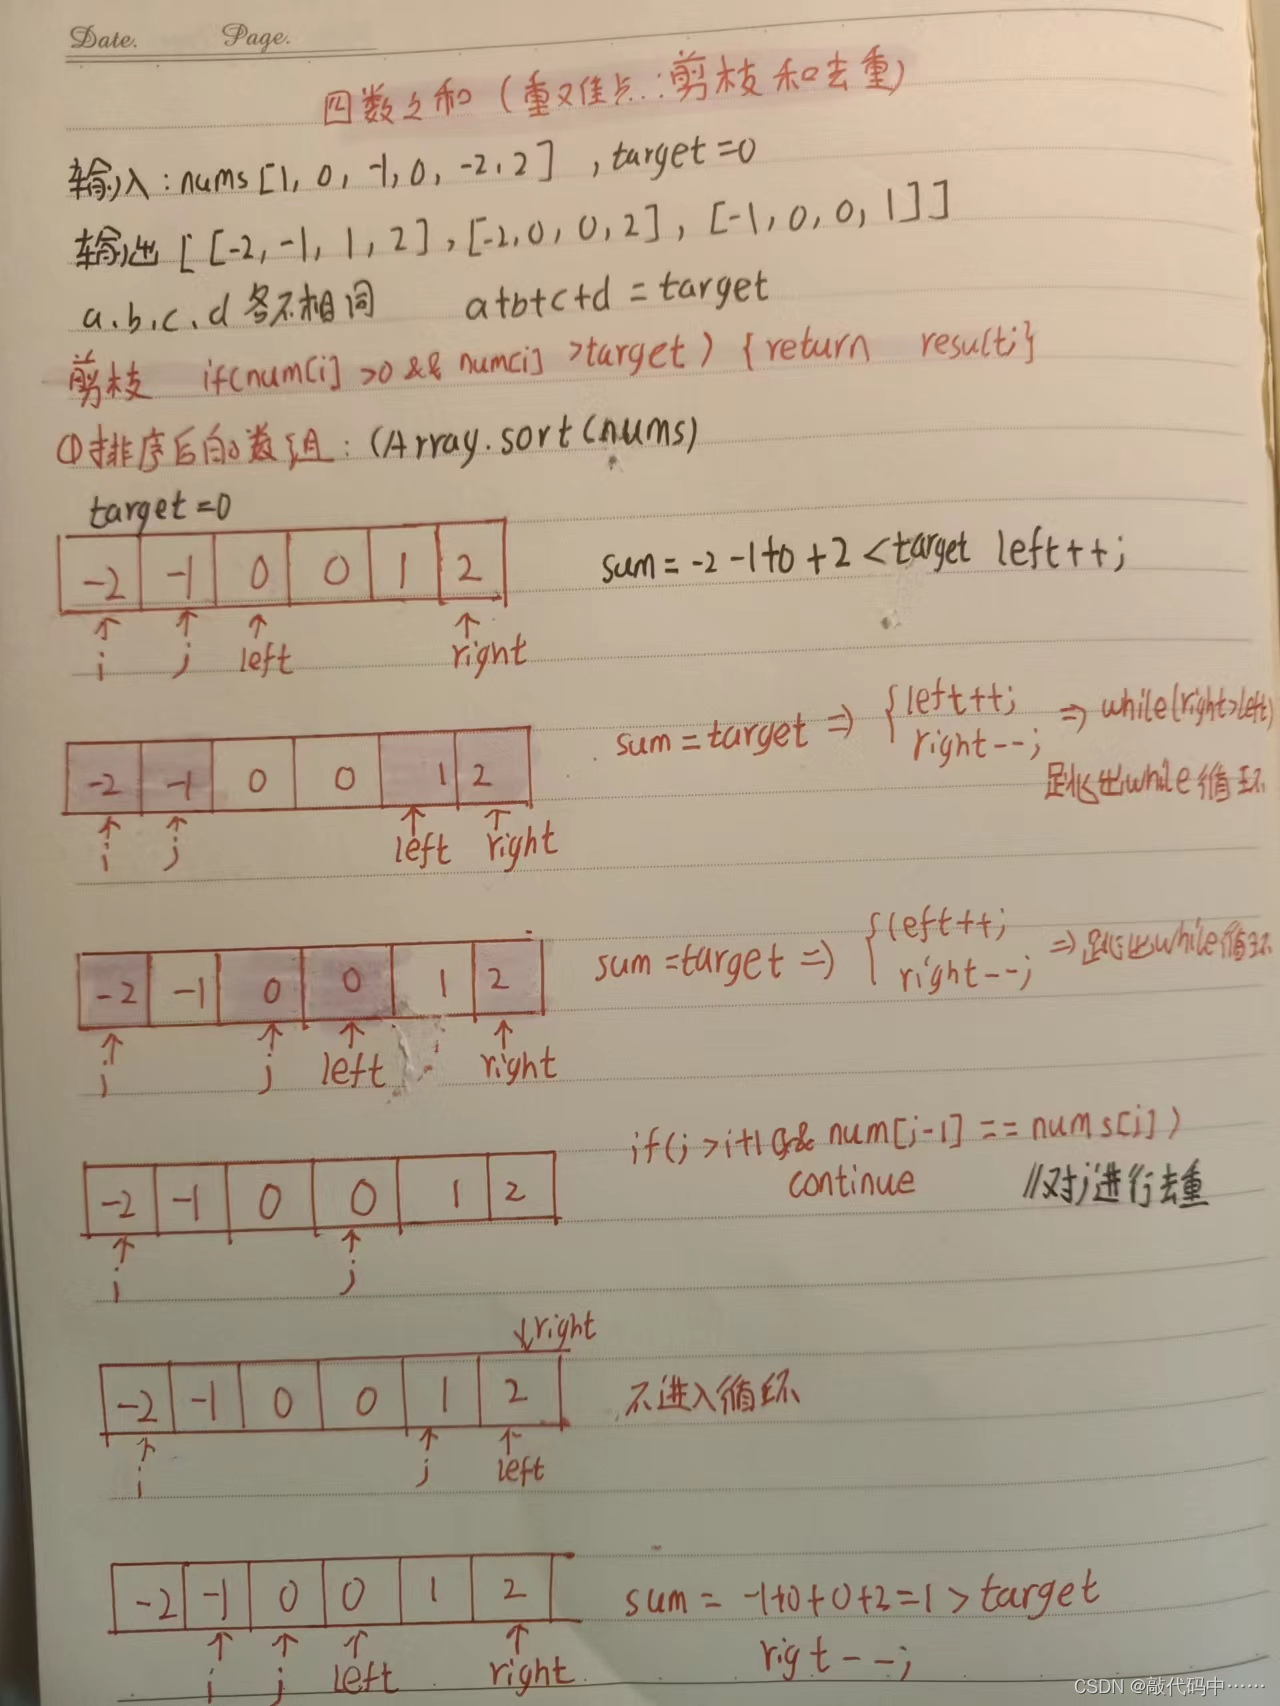 Date. Page.
四数之和(重难点:剪枝和去重)
输入:nums[1, 0, -1, 0, -2, 2] , target=0
输出[[-2, -1, 1, 2], [-2, 0, 0, 2], [-1, 0, 0, 1]]
a.b.c.d各不相同 a+b+c+d = target
剪枝 if(num[i] >0 && num[i] >target) {return result;}
①排序后的数组:(Array.sort(nums)
target=0
-2 -1 0 0 1 2 sum=-2-1+0+2<target left++;
i j left right
-2 -1 0 0 1 2 sum=target ⇒ {left++; right--; ⇒ while(right>left)
跳出while循环
i j left right
-2 -1 0 0 1 2 sum=target ⇒ {left++; right--; ⇒跳出while循环
i j left right
if(j>i+1 && num[j-1] == nums[j])
continue //对j进行去重
-2 -1 0 0 1 2
i j
right
-2 -1 0 0 1 2 不进入循环
i j left
-2 -1 0 0 1 2 sum = -1+0+0+2=1 > target
i j left right rigt--;
CSDN @敲代码中……